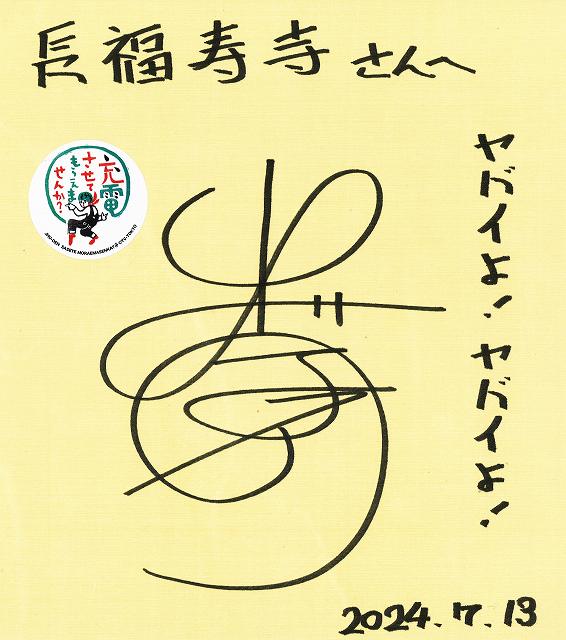 長福寿寺さんへ
ヤバイよ!ヤバイよ!
充電
させて
もらえま
せんか?
JYU-DEN SASETE MORAEMASENKA? © CYU-TOKYO
2024.7.13